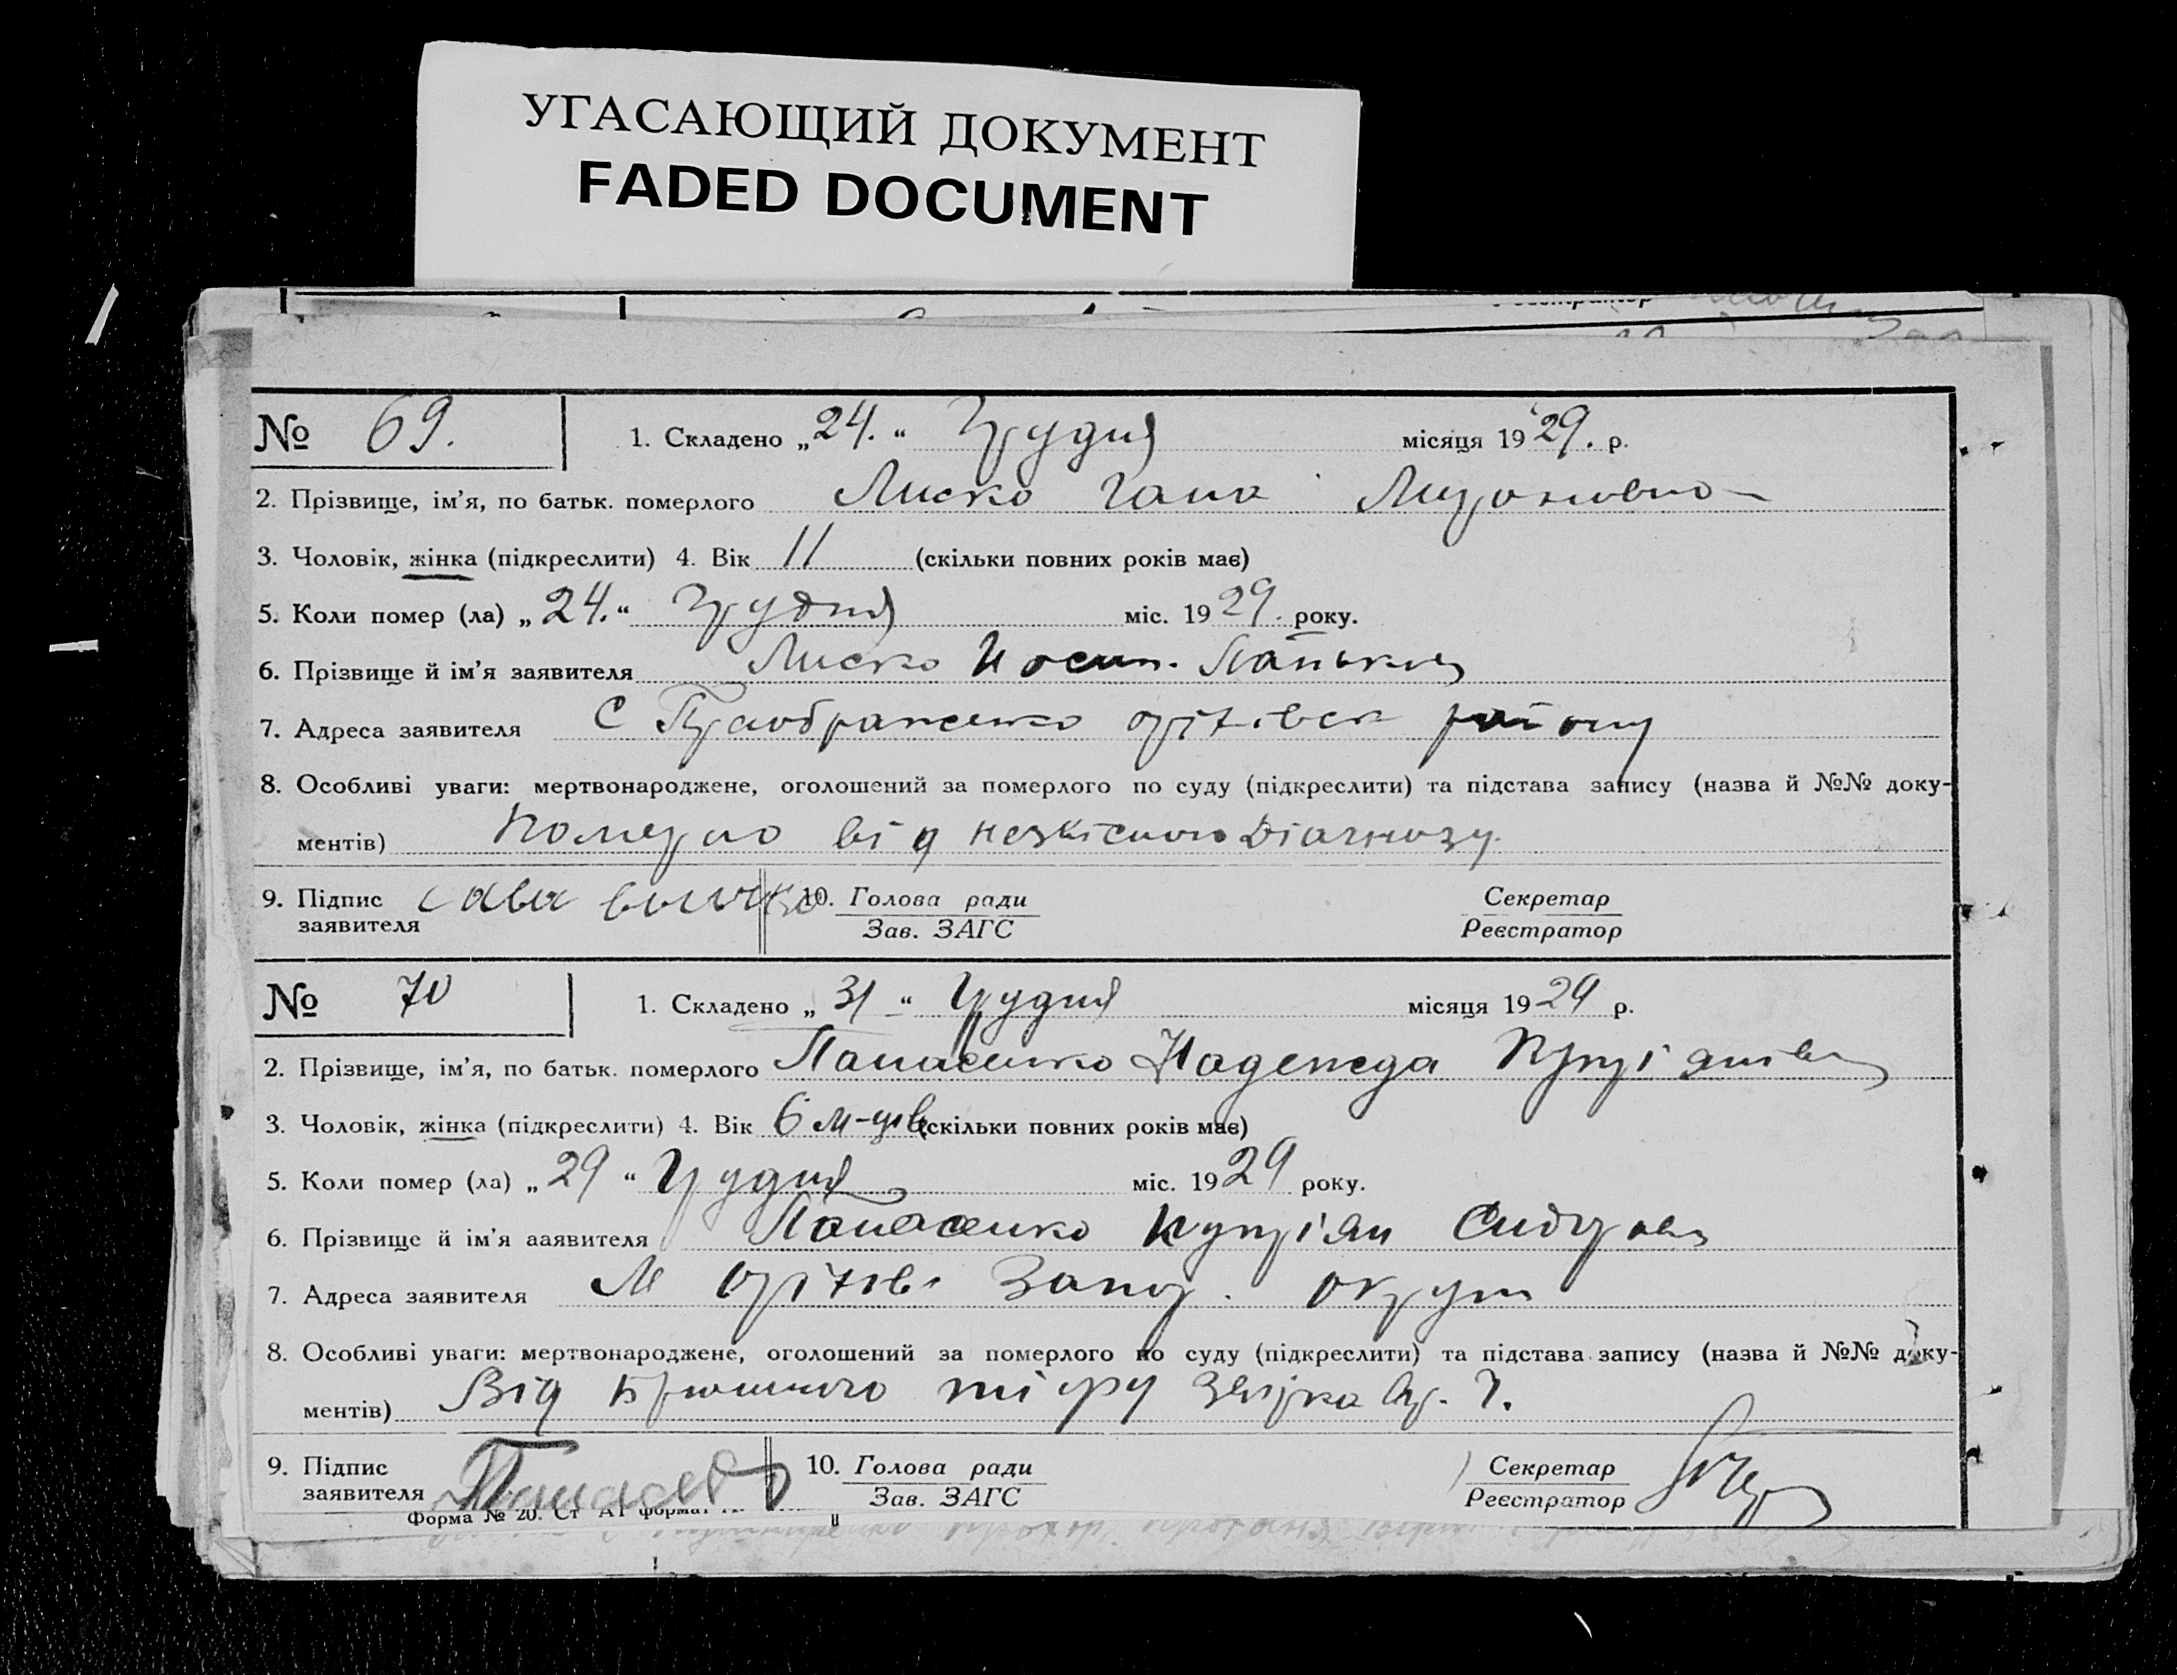 УГАСАЮЩИЙ ДОКУМЕНТ
FADED DOCUMENT
№ 69.
1. Складено „24.“ Грудня місяця 1929. р.
2. Прізвище, ім'я, по батьк. померлого Лиско Гана Мироновна
3. Чоловік, жінка (підкреслити) 4. Вік 11 (скільки повних років має)
5. Коли помер (ла) „24.“ Грудня міс. 1929. року.
6. Прізвище й ім'я заявителя Лиско Иосип.
7. Адреса заявителя С Преображенко оріхівск району
8. Особливі уваги: мертвонароджене, оголошений за померлого по суду (підкреслити) та підстава запису (назва й №№ доку-
ментів) Померло від діагнозу.
9. Підпис заявителя
10. Голова ради
Зав. ЗАГС
Секретар
Реєстратор
№ 70
1. Складено „31“ Грудня місяця 1929 р.
2. Прізвище, ім'я, по батьк. померлого Панасенко Надежда
3. Чоловік, жінка (підкреслити) 4. Вік 6 м-ців (скільки повних років має)
5. Коли помер (ла) „29“ Грудня міс. 1929 року.
6. Прізвище й ім'я заявителя Панасенко Купріян Сидоров
7. Адреса заявителя М Оріхів Запор. округи
8. Особливі уваги: мертвонароджене, оголошений за померлого по суду (підкреслити) та підстава запису (назва й №№ доку-
ментів) Від Брюшного тіфу
9. Підпис заявителя
10. Голова ради
Зав. ЗАГС
Секретар
Реєстратор
Форма № 20. Ст А1 формат